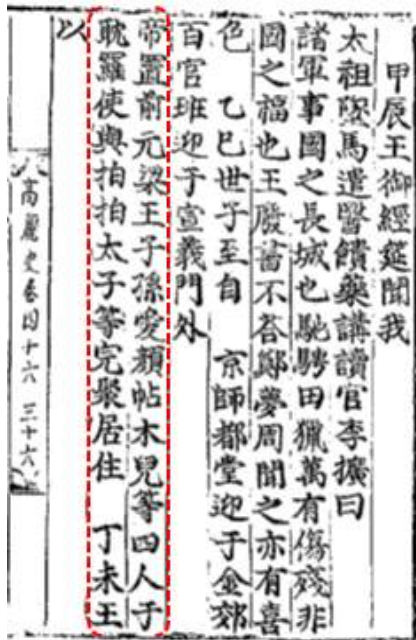 甲辰王御經筵聞我
太祖墜馬遣醫饋藥講讀官李擴曰
諸軍事國之長城也馳騁田獵萬有傷殘非
國之福也王不荅鄭夢周聞之亦有喜
色 乙巳世子至自 京師都堂迎于金郊
百官班迎于宣義門外
帝置前元梁王子孫愛顏帖木兒等四人于
耽羅使與拍拍太子等完聚居住 丁未王
以
高麗史卷四十六 三十六